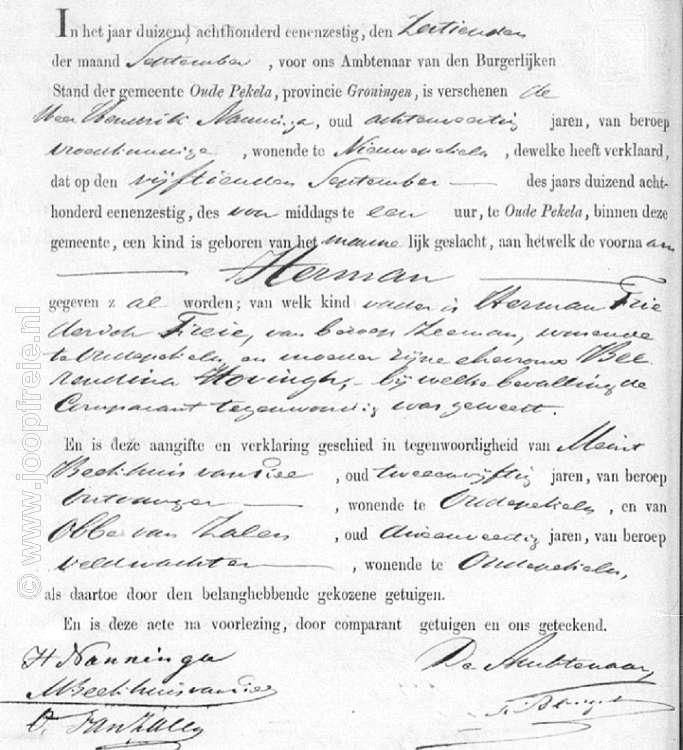 In het jaar duizend achthonderd eenenzestig, den Zestienden
der maand September, voor ons Ambtenaar van den Burgerlijken
Stand der gemeente Oude Pekela, provincie Groningen, is verschenen de
Heer Hendrik Nanninga, oud achtenveertig jaren, van beroep
vroedkundige, wonende te Nieuwepekela, dewelke heeft verklaard,
dat op den vijftienden September des jaars duizend acht-
honderd eenenzestig, des voor middags te een uur, te Oude Pekela, binnen deze
gemeente, een kind is geboren van het manne lijk geslacht, aan hetwelk de voorna am
Herman
gegeven z al worden; van welk kind vader is Herman Frie
derich Freie, van beroep Zeeman, wonende
te Oudepekela, en moeder zijne ehevrouw Bee
rendina Hovingh, bij welke bevalling de
Comparant tegenwoordig was geweest.
En is deze aangifte en verklaring geschied in tegenwoordigheid van Meint
Beedthuis van Siee, oud tweeenvijftig jaren, van beroep
Ontvanger, wonende te Oudepekela, en van
Obbe van Zalen, oud drieenveertig jaren, van beroep
veldwachter, wonende te Oudepekela,
als daartoe door den belanghebbende gekozene getuigen.
En is deze acte na voorlezing, door comparant getuigen en ons geteekend.
H Nanninga
De Ambtenaar,
O. van Zalen
© www.joopfreie.nl